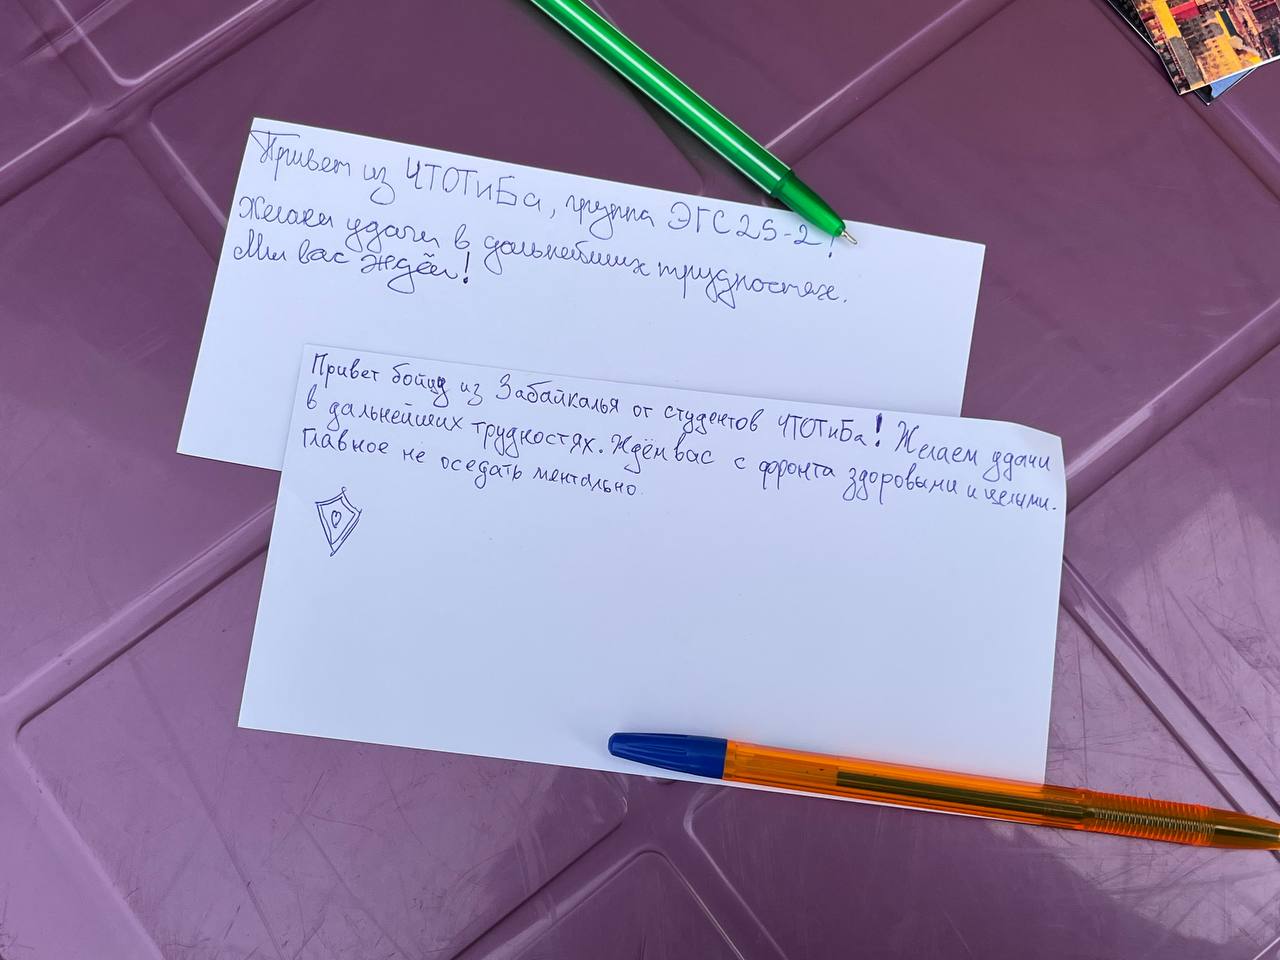 Привет из ЧТОТиБа, группа ЭГС 25-2!
Желаем удачи в дальнейших трудностях.
Мы вас ждём!
Привет бойцу из Забайкалья от студентов ЧТОТиБа! Желаем удачи
в дальнейших трудностях. Ждём вас с фронта здоровыми и целыми.
Главное не оседать ментально.